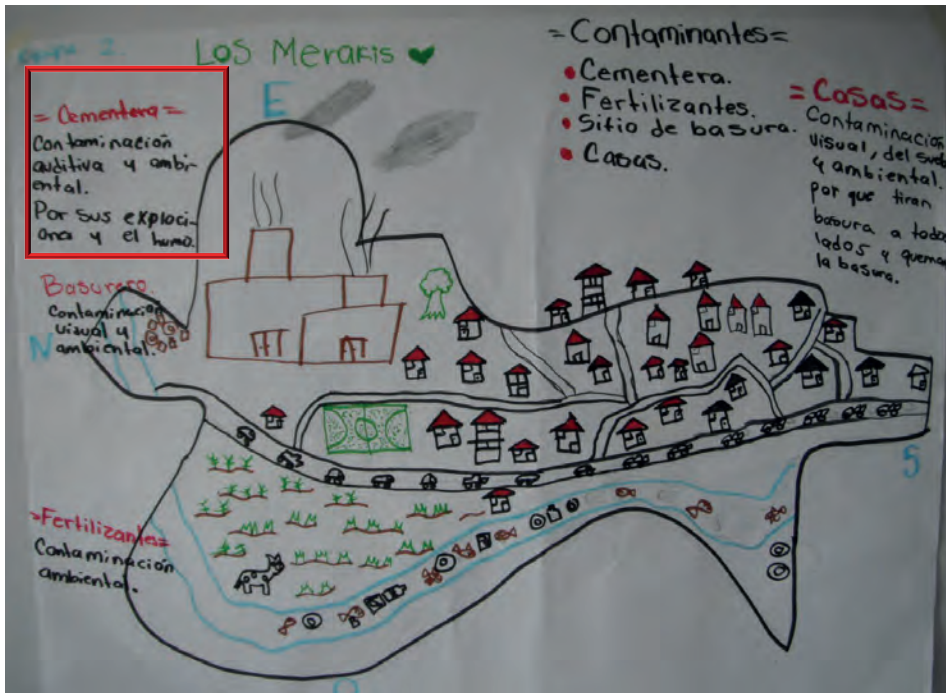 Equipo 2.
LOS Merakis
E
= Cementera =
Contaminación
auditiva y ambi-
ental.
Por sus exploci-
ones y el humo.
Basurero.
Contaminación
visual y
ambiental.
N
=Fertilizantes=
Contaminación
ambiental.
= Contaminantes =
Cementera.
Fertilizantes.
Sitio de basura.
Casas.
= Casas =
Contaminación
visual, del suelo
y ambiental.
por que tiran
basura a todos
lados y queman
la basura.
S
O